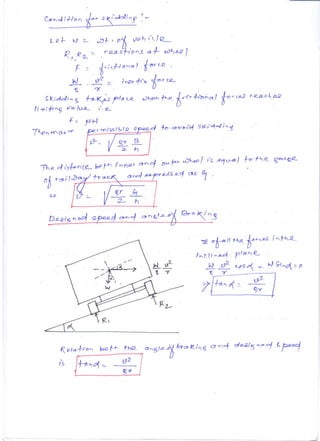 Condition for skidding :-
Let W = wt. of vehicle
R1, R2 = reactions at wheel
F = frictional force.
W/g v²/r = inertia force
Skidding takes place when the frictional force reaches
limiting value i.e
F = μW
The max m permissible speed to avoid skidding
v = √(gr/2 B/h)
The distance beth inner and outer wheel is equal to the gauge
of railway track and expressed as G.
so v = √(gr/2 G/h)
Designed speed and angle of Banking
Σ of all the forces in the
inclined plane
W/g v²/r cosα = W sinα = 0
⇒ tanα = v²/gr
B
W
W/g v²/r
R2
R1
α
Relation beth the angle of banking and designed speed
is tanα = v²/gr